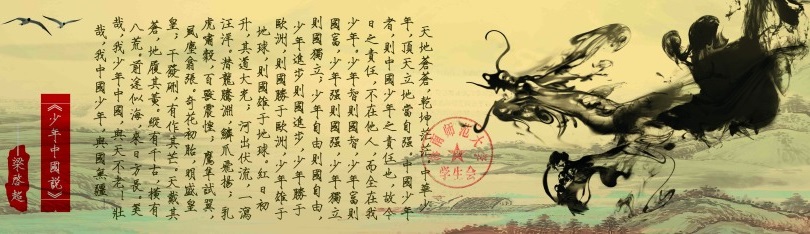 天地蒼蒼,乾坤茫茫,中華少
年,頂天立地當自强 中國少年
者,則中國少年之責任也。故今
日之責任,不在他人,而全在我
少年。少年智則國智,少年富則
國富,少年强則國强,少年獨立
則國獨立,少年自由則國自由,
少年進步則國進步,少年勝于
歐洲,則國勝于歐洲,少年雄于
地球,則國雄于地球。紅日初
升,其道大光,河出伏流,一瀉
汪洋。潛龍騰淵,鱗爪飛揚;乳
虎嘯穀,百獸震惶;鷹隼試翼,
風塵翕張。奇花初胎,皇
皇;干發硎,有作其芒。天戴其
蒼,地履其黃,縱有千古,橫有
八荒,前途似海,來日方長。美
哉,我少年中國,與天不老!壯
哉,我中國少年,與國無疆
《少年中國説》
——梁啓超
师范大学
学生会